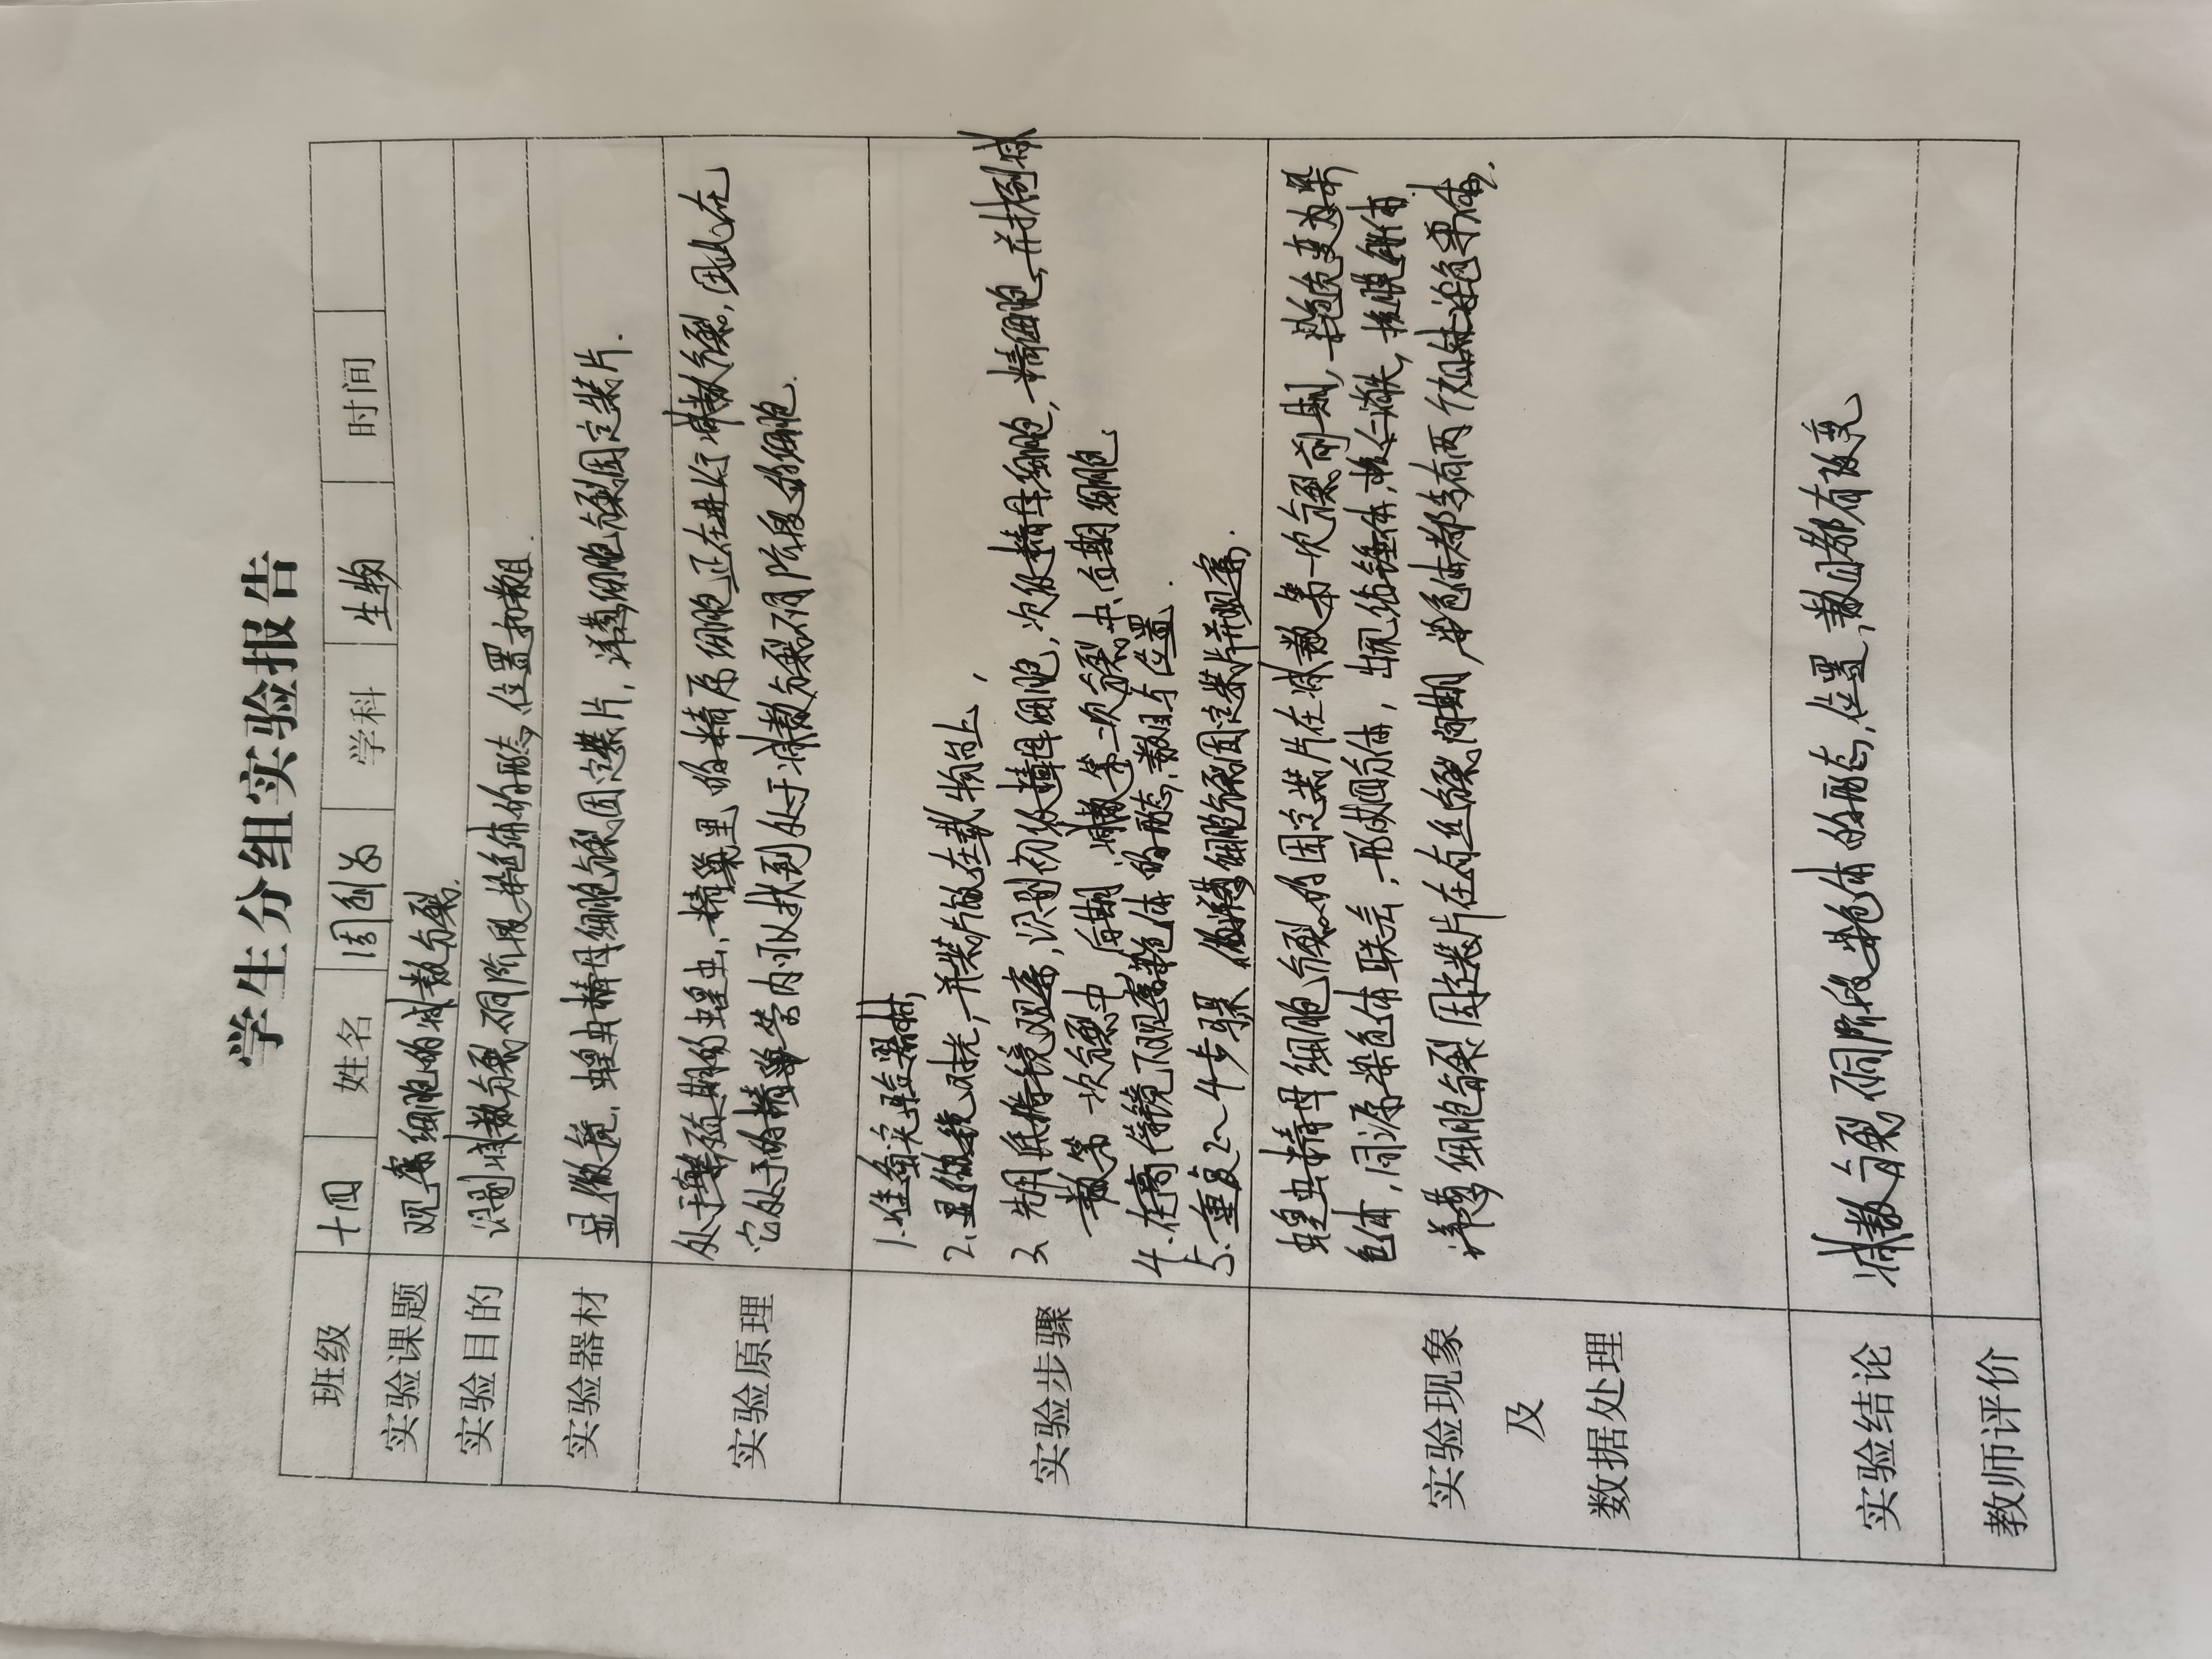 学生分组实验报告
班级 十四 姓名 周 学科 生物 时间
实验课题 观察细胞的减数分裂.
实验目的 识别减数分裂不同阶段染色体的形态、位置和数目.
实验器材 显微镜、蝗虫精母细胞分裂固定装片, 洋葱细胞分裂固定装片.
实验原理 处于繁殖期的蝗虫, 精巢里的精原细胞正在进行减数分裂, 因此在
它处于的精巢管内可以找到处于减数分裂不同阶段的细胞.
实验步骤
1.准备实验器材,
2.显微镜对光, 并装片放在载物台上,
3.先用低倍镜观察, 识别初级精母细胞, 次级精母细胞, 精细胞, 并找到减
数第一次分裂中 后期、减数第二次分裂中、后期细胞.
4.在高倍镜下观察染色体的形态、数目与位置.
5.重复2～4步骤 洋葱细胞分裂固定装片并观察.
实验现象
及
数据处理
蝗虫精母细胞分裂的固定装片在减数第一次分裂前期, 染色质变为染
色体, 同源染色体联会, 形成四分体, 出现纺锤体, 核仁消失, 核膜解体.
洋葱细胞分裂固定装片在有丝分裂间期 染色体都含有两个姐妹染色单体.
实验结论 减数分裂不同阶段染色体的形态, 位置, 数目都有改变
教师评价